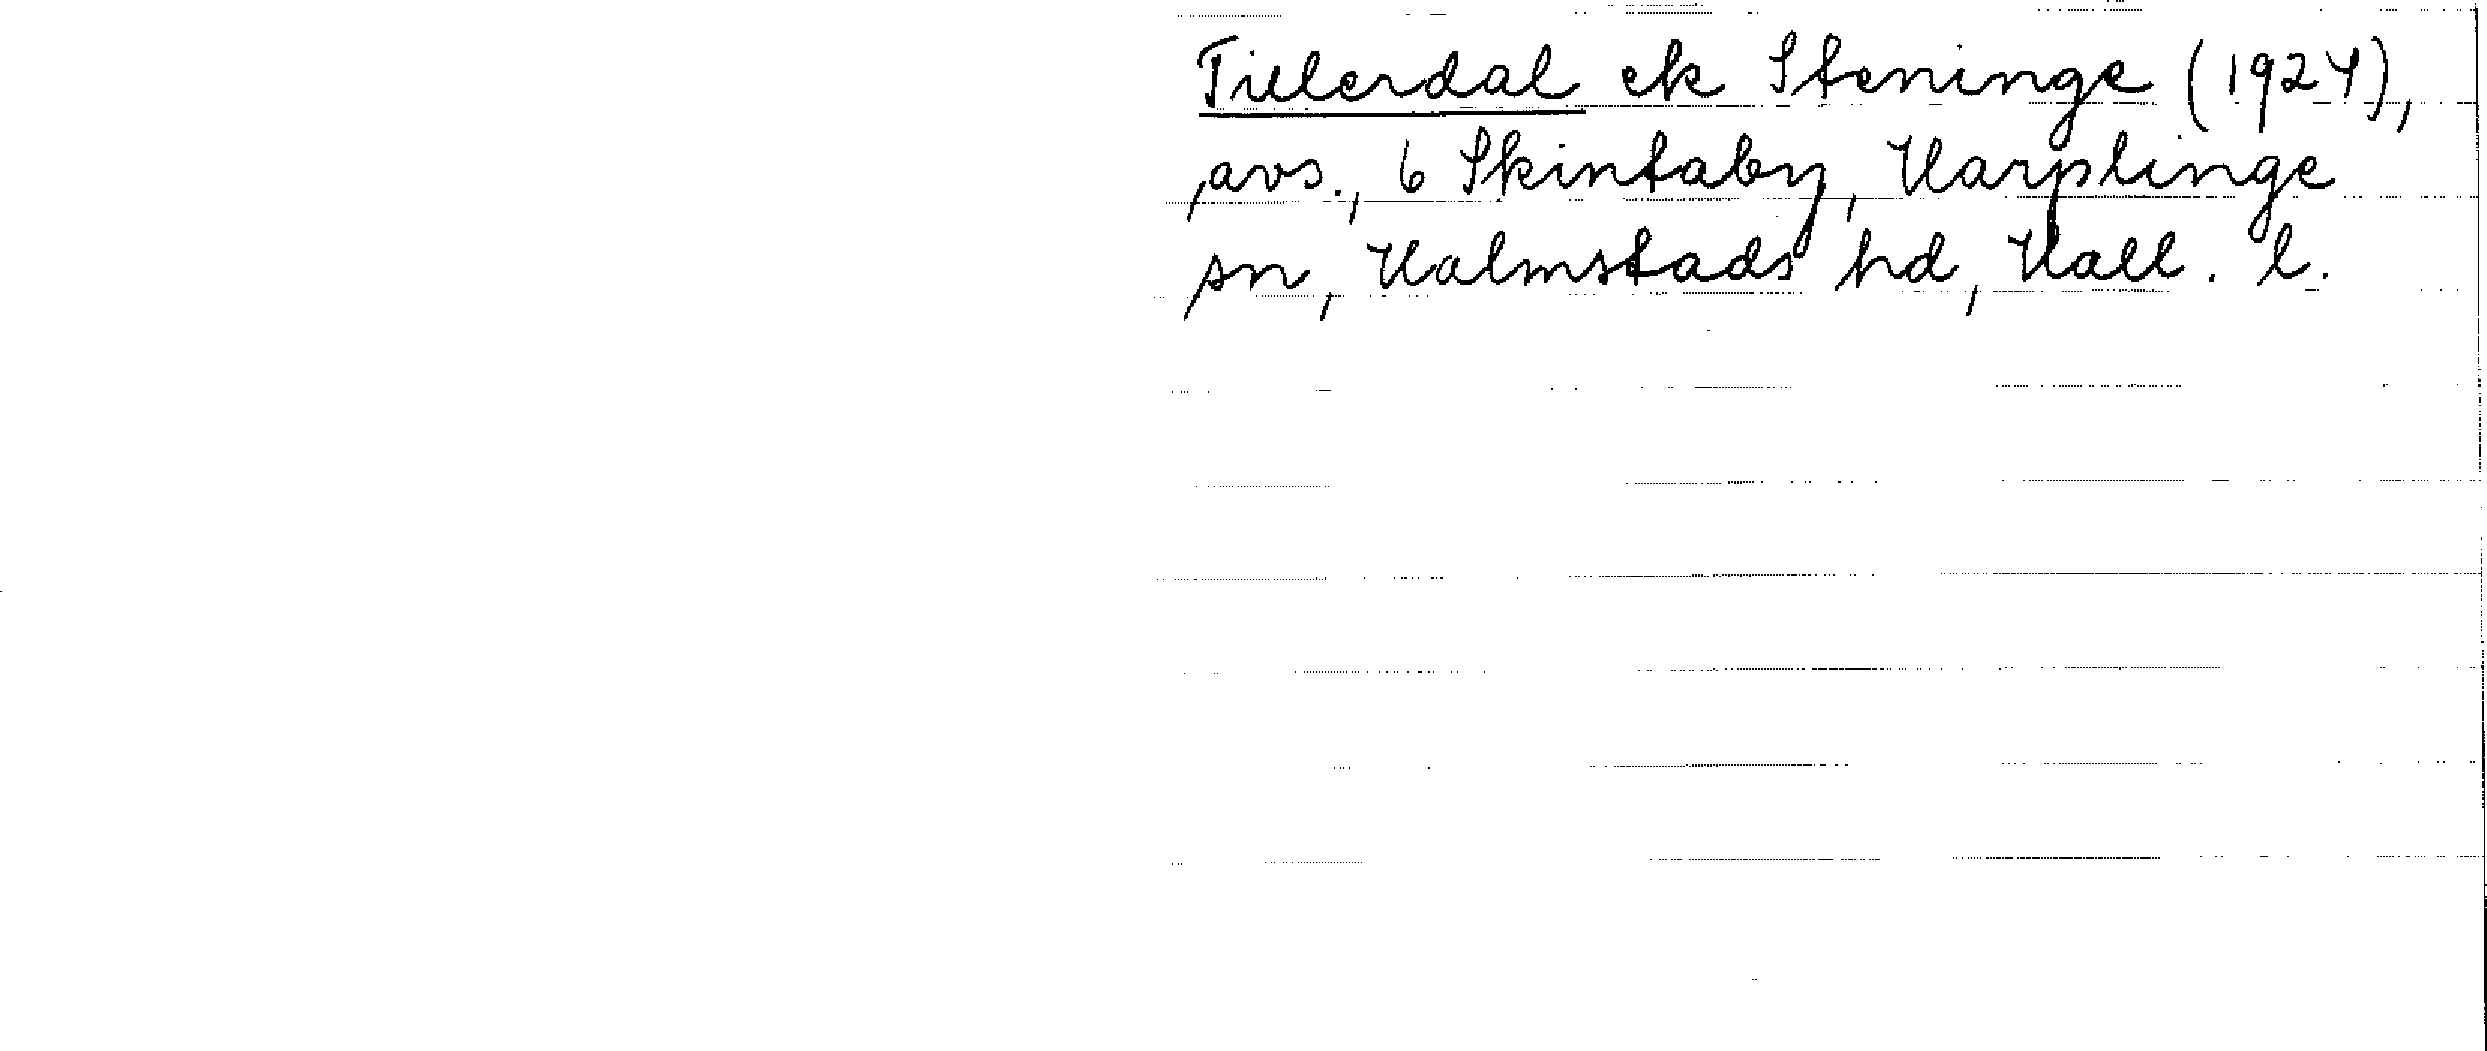 Tillerdal ek Steninge (1924),
avs., 6 Skintaby, Harplinge
sn, Halmstads hd, Hall. l.